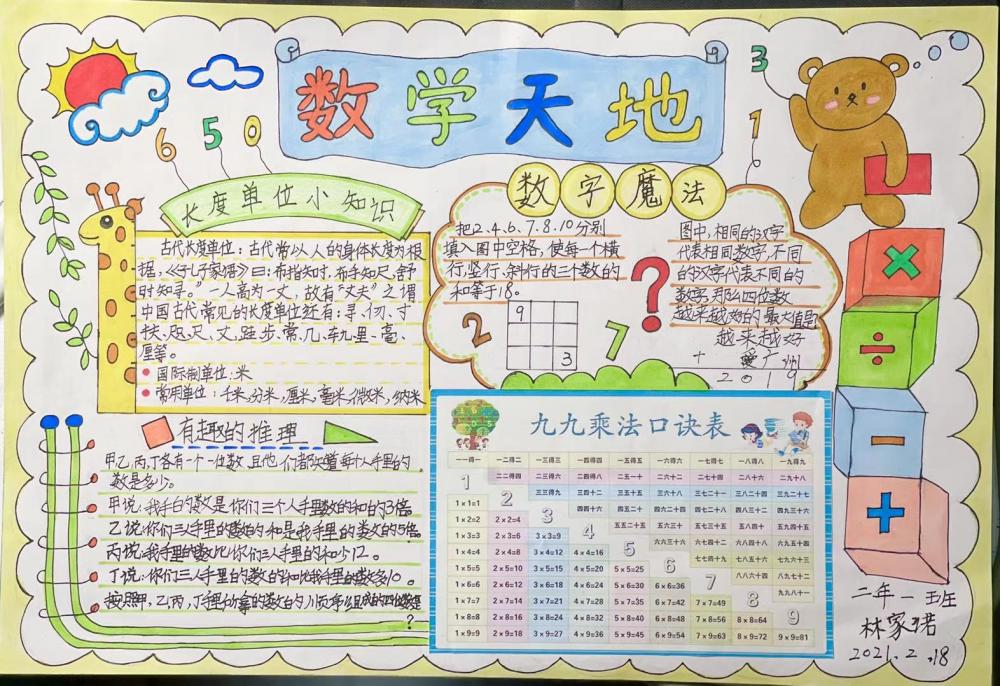 数学天地
3
6 5 0
1
长度单位小知识
古代长度单位：古代常以人的身体长度为根
据，《孔子家语》曰：布指知寸，布手知尺，舒
肘知寻。”一人高为一丈，故有“丈夫”之谓
中国古代常见的长度单位还有：寻、仞、寸
扶、咫、尺、丈、跬、步、常、几、轨、里、毫、
厘等。
国际制单位：米
常用单位：千米，分米，厘米，毫米，微米，纳米
数字魔法
把2.4.6.7.8.10分别
填入图中空格，使每一个横
行，竖行、斜行的三个数的
和等于18。
9
3
2
7
?
图中，相同的汉字
代表相同数字，不同
的汉字代表不同的
数字，那么四位数
越来越好的最大值是
越来越好
+ 爱广州
2019
×
÷
－
+
有趣的推理
甲乙，丙，丁各有一个一位数，且他们都知道每个人手里的
数是多少。
甲说：我手里的数是你们三个人手里数的和的3倍
乙说：你们三人手里的数的和是我手里的数的5倍
丙说：我手里的数比你们三人手里的和少12。
丁说：你们三人手里的数的和比我手里的数多10。
按照甲，乙，丙，丁手里所拿的数的顺序组成的四位数是
?
九九乘法口诀表
一一得一 一二得二 一三得三 一四得四 一五得五 一六得六 一七得七 一八得八 一九得九
1 二二得四 二三得六 二四得八 二五一十 二六十二 二七十四 二八十六 二九十八
1×1=1 2 三三得九 三四十二 三五十五 三六十八 三七二十一 三八二十四 三九二十七
1×2=2 2×2=4 3 四四十六 四五二十 四六二十四 四七二十八 四八三十二 四九三十六
1×3=3 2×3=6 3×3=9 4 五五二十五 五六三十 五七三十五 五八四十 五九四十五
1×4=4 2×4=8 3×4=12 4×4=16 5 六六三十六 六七四十二 六八四十八 六九五十四
1×5=5 2×5=10 3×5=15 4×5=20 5×5=25 6 七七四十九 七八五十六 七九六十三
1×6=6 2×6=12 3×6=18 4×6=24 5×6=30 6×6=36 7 八八六十四 八九七十二
1×7=7 2×7=14 3×7=21 4×7=28 5×7=35 6×7=42 7×7=49 8 九九八十一
1×8=8 2×8=16 3×8=24 4×8=32 5×8=40 6×8=48 7×8=56 8×8=64 9
1×9=9 2×9=18 3×9=27 4×9=36 5×9=45 6×9=54 7×9=63 8×9=72 9×9=81
二年一班
林家珺
2021.2.18